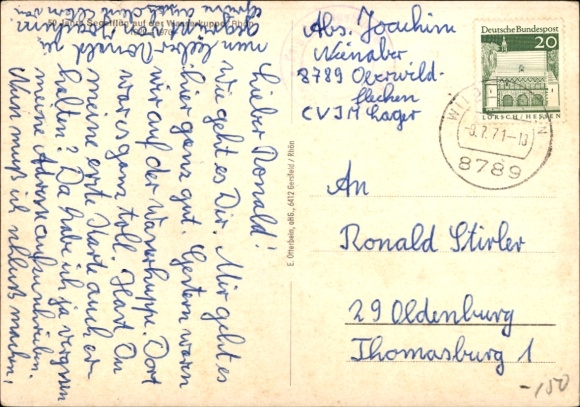 50 Jahre Segelflug auf der Wasserkuppe / Rhön
Lieber Ronald!
Wie geht es Dir. Mir geht es
hier ganz gut. Gestern waren
wir auf der Wasserkuppe. Dort
war es ganz toll. Hast Du
meine erste Karte auch er-
halten? Da habe ich ja vergessen
meine Adresse aufzuschreiben.
Nun muß ich schluß machen,
nun lieber Ronald
Joachim
E. Otterbein, oHG., 6412 Gersfeld / Rhön
Abs. Joachim
Nienaber
8789 Oberwild-
flecken
CVJM Lager
Deutsche Bundespost
20
LORSCH / HESSEN
-9.7.71-18
8789
An
Ronald Stirler
29 Oldenburg
Thomasburg 1
-150